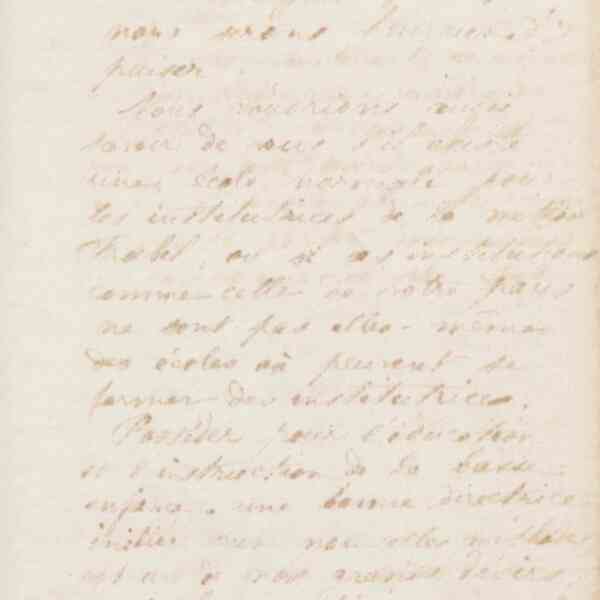 nous
puiser.
Nous voudrions aussi
savoir de vous s'il existe
une école normale pour
les institutrices de la
Frœbel, ou si ces institutions
comme celle de notre pays
ne sont pas elles-mêmes
des écoles où peuvent se
former des institutrices.
Posséder pour l'éducation
et l'instruction de la basse
enfance, une bonne directrice
initiée aux nouvelles
est un de nos grands désirs